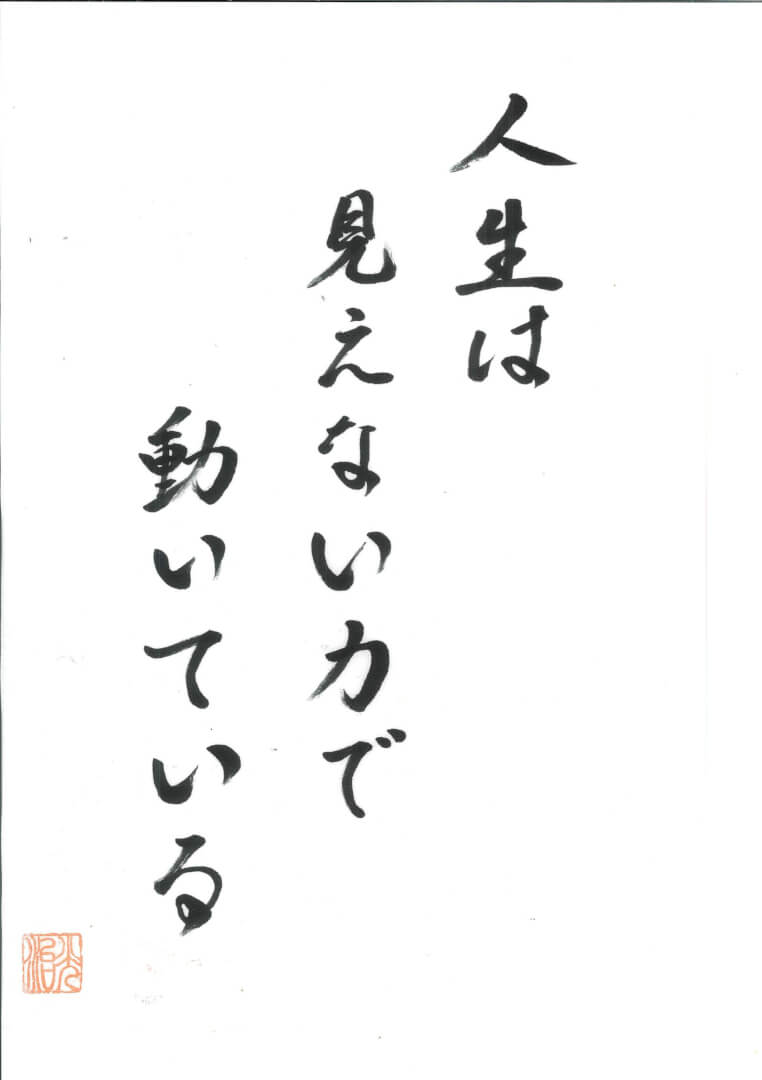 人生は
見えない力で
動いている